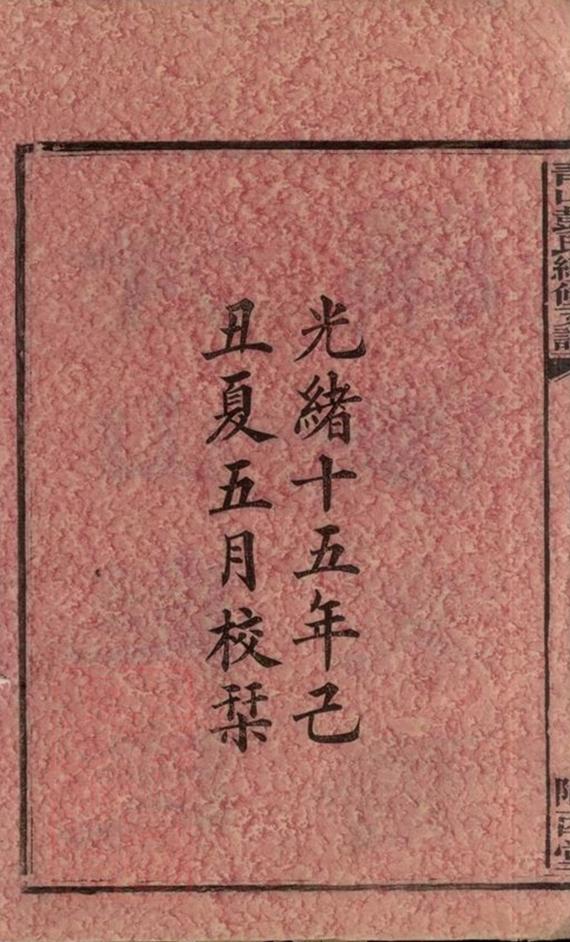 光緒十五年己
丑夏五月校栞